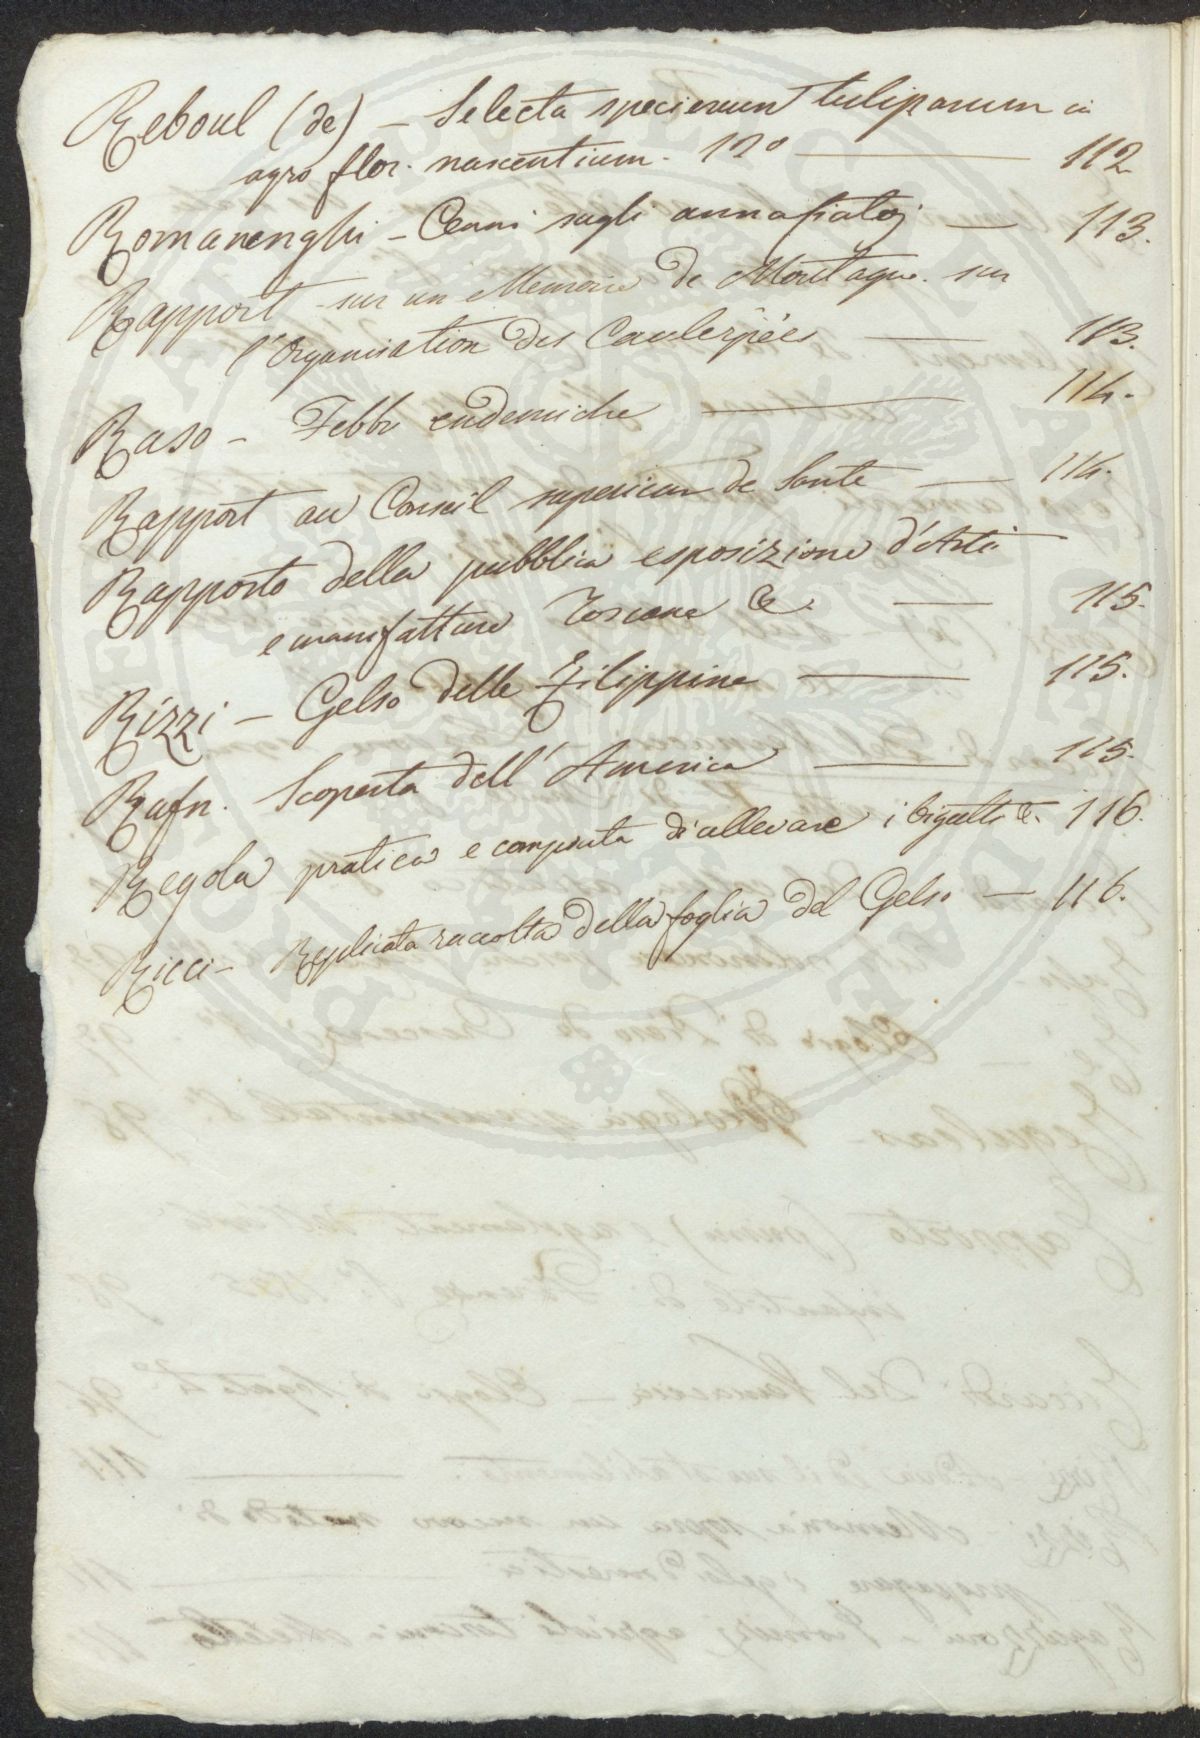 Reboul (de) – Selecta specierum tuliparum in
agro flor. nascentium. 12º — 112
Romanenghi – Cenni sugli annafiatoj — 113.
Rapport sur un Memoire de Montagne sur
l'Organisation des Caulerpées — 113.
Raso – Febbri endemiche — 114.
Rapport au Conseil superieur de Santé — 114.
Rapporto della pubblica esposizione d'Arti
e manifatture Toscane &. — 115.
Rizzi – Gelso delle Filippine — 115.
Rafn. Scoperta dell'America — 115.
Regola pratica e compiuta di allevare i bigatti &. 116.
Ricci – Replicata raccolta della foglia del Gelso — 116.